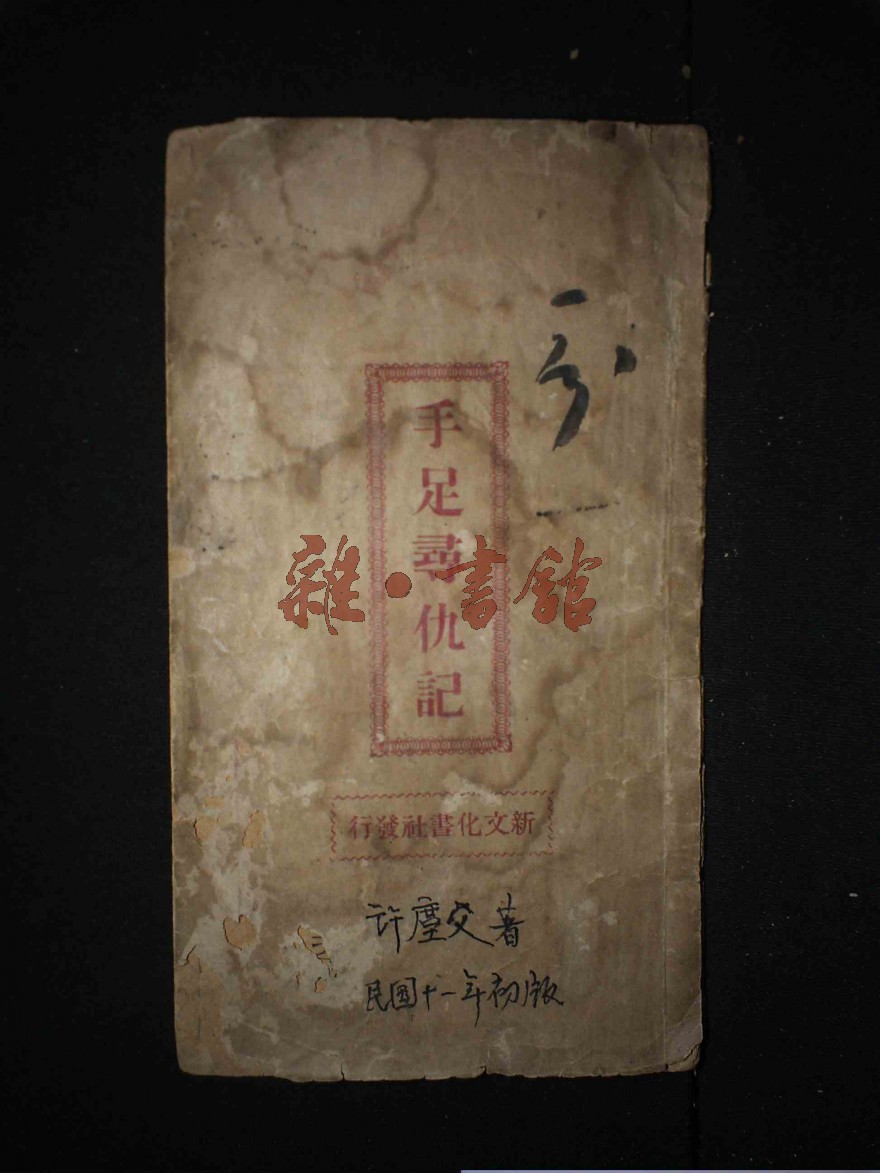 手足尋仇記
雜·書館
新文化書社發行
许塵父著
民国十一年初版